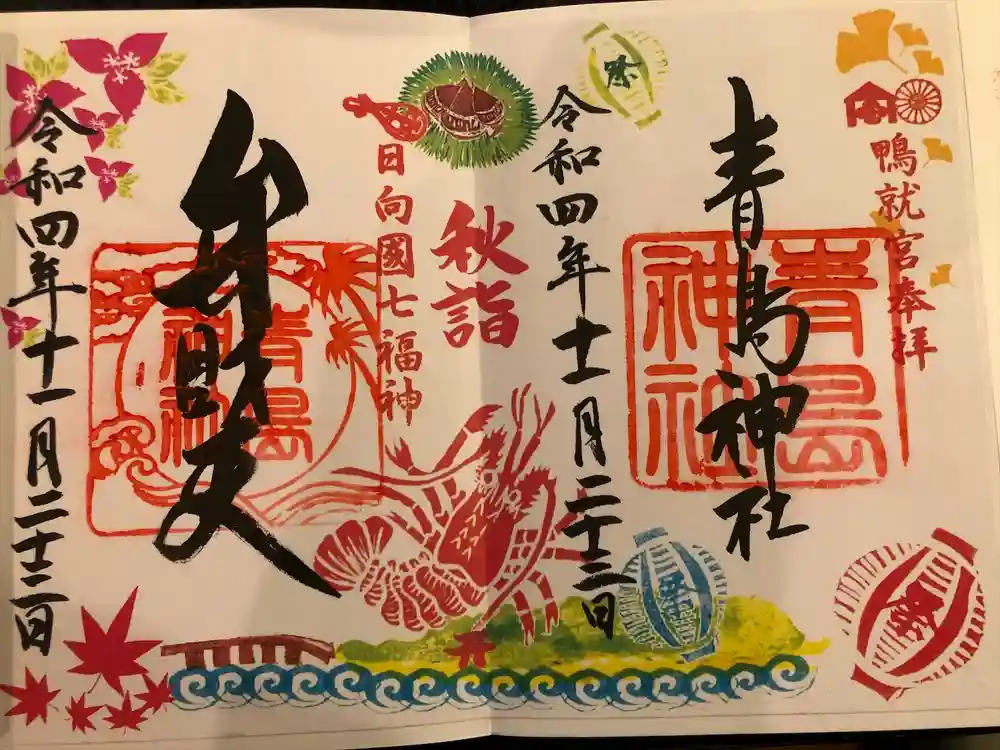 鴨就宮奉拝
青島神社
青島
神社
祭
祭
祭
令和四年十一月二十二日
秋詣
日向國七福神
弁財天
青島
神社
令和四年十一月二十二日